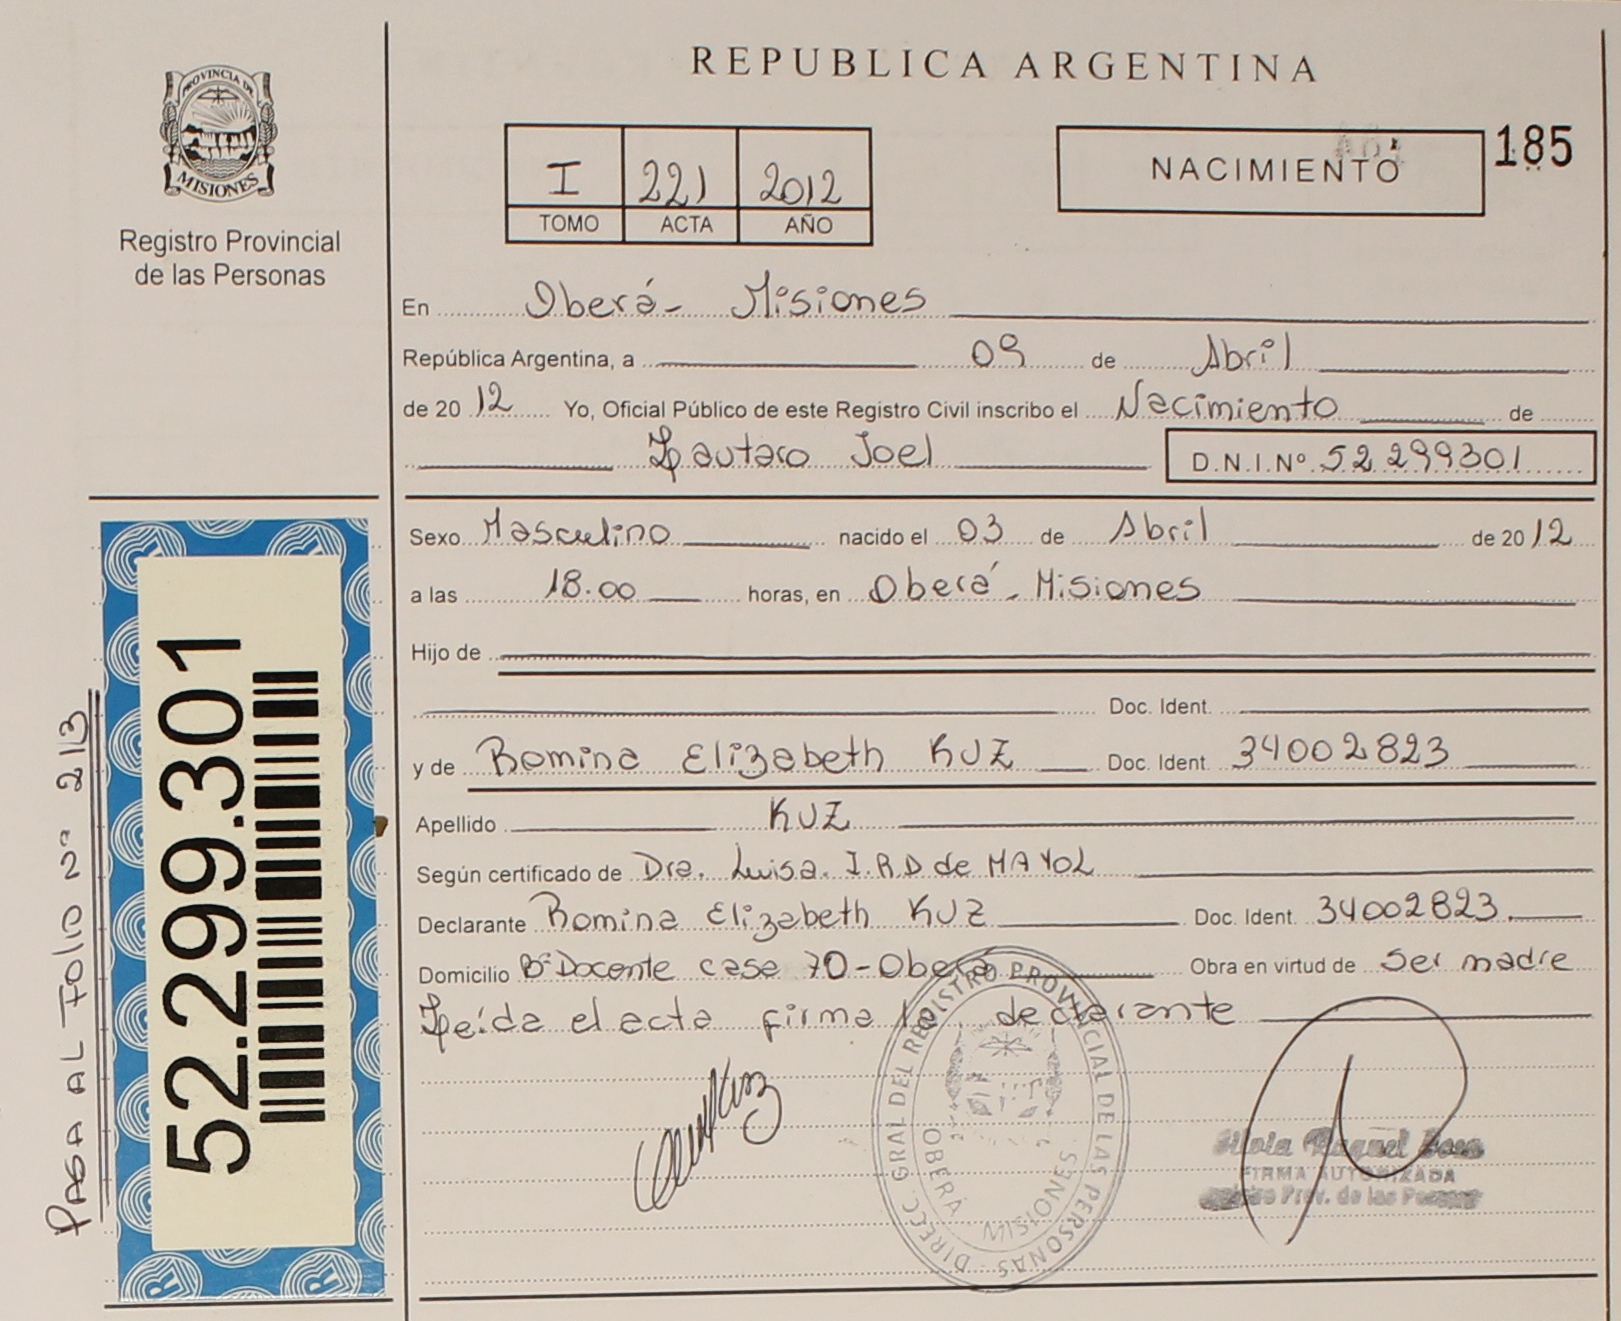 REPUBLICA ARGENTINA
PROVINCIA DE
MISIONES
Registro Provincial
de las Personas
I 221 2012
TOMO ACTA AÑO
NACIMIENTO
185
En Oberá - Misiones
República Argentina, a 09 de Abril
de 20 12 Yo, Oficial Público de este Registro Civil inscribo el Nacimiento de
Lautaro Joel D.N.I.Nº 52 299301
Sexo Masculino nacido el 03 de Abril de 20 12
a las 18.00 horas, en Oberá - Misiones
Hijo de
Doc. Ident.
y de Romina Elizabeth KUZ Doc. Ident. 34002823
Apellido KUZ
Según certificado de Dra. Luisa. I.R.D de MAYOL
Declarante Romina Elizabeth KUZ Doc. Ident. 34002823.
Domicilio Bº Docente casa 70 - Oberá Obra en virtud de ser madre
Leída el acta firma la declarante
DIREC. GRAL DEL REGISTRO PROVINCIAL DE LAS PERSONAS
OBERÁ MISIONES
Silvia Raquel
FIRMA AUTORIZADA
Prov. de las Personas
52.299.301
PASA AL FOLIO Nº 213